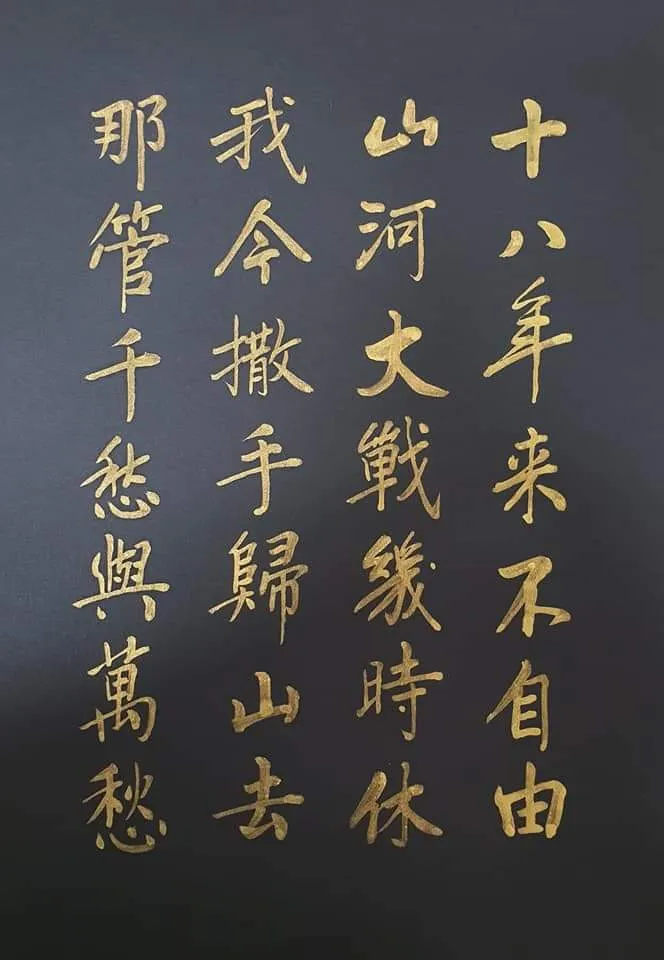 十八年来不自由
山河大戰幾時休
我今撒手歸山去
那管千愁與萬愁